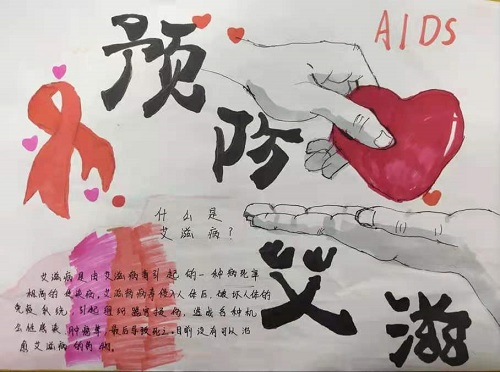 AIDS
预
防
艾
滋
什么是
艾滋病?
艾滋病是由艾滋病毒引起的一种病死率
极高的传染病,艾滋病病毒侵入人体后,破坏人体的
免疫系统,引起 病,造成各种机
会性感染、肿瘤等,最后导致死亡。目前没有可以治
愈艾滋病的药物。